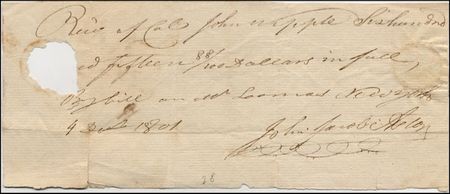 Recd of Col John Whipple Sixhundred
and fifteen 88/100 Dollars in full
By bill on Mr Loomas New York
4 Decr 1801
John Jacob Astor
28